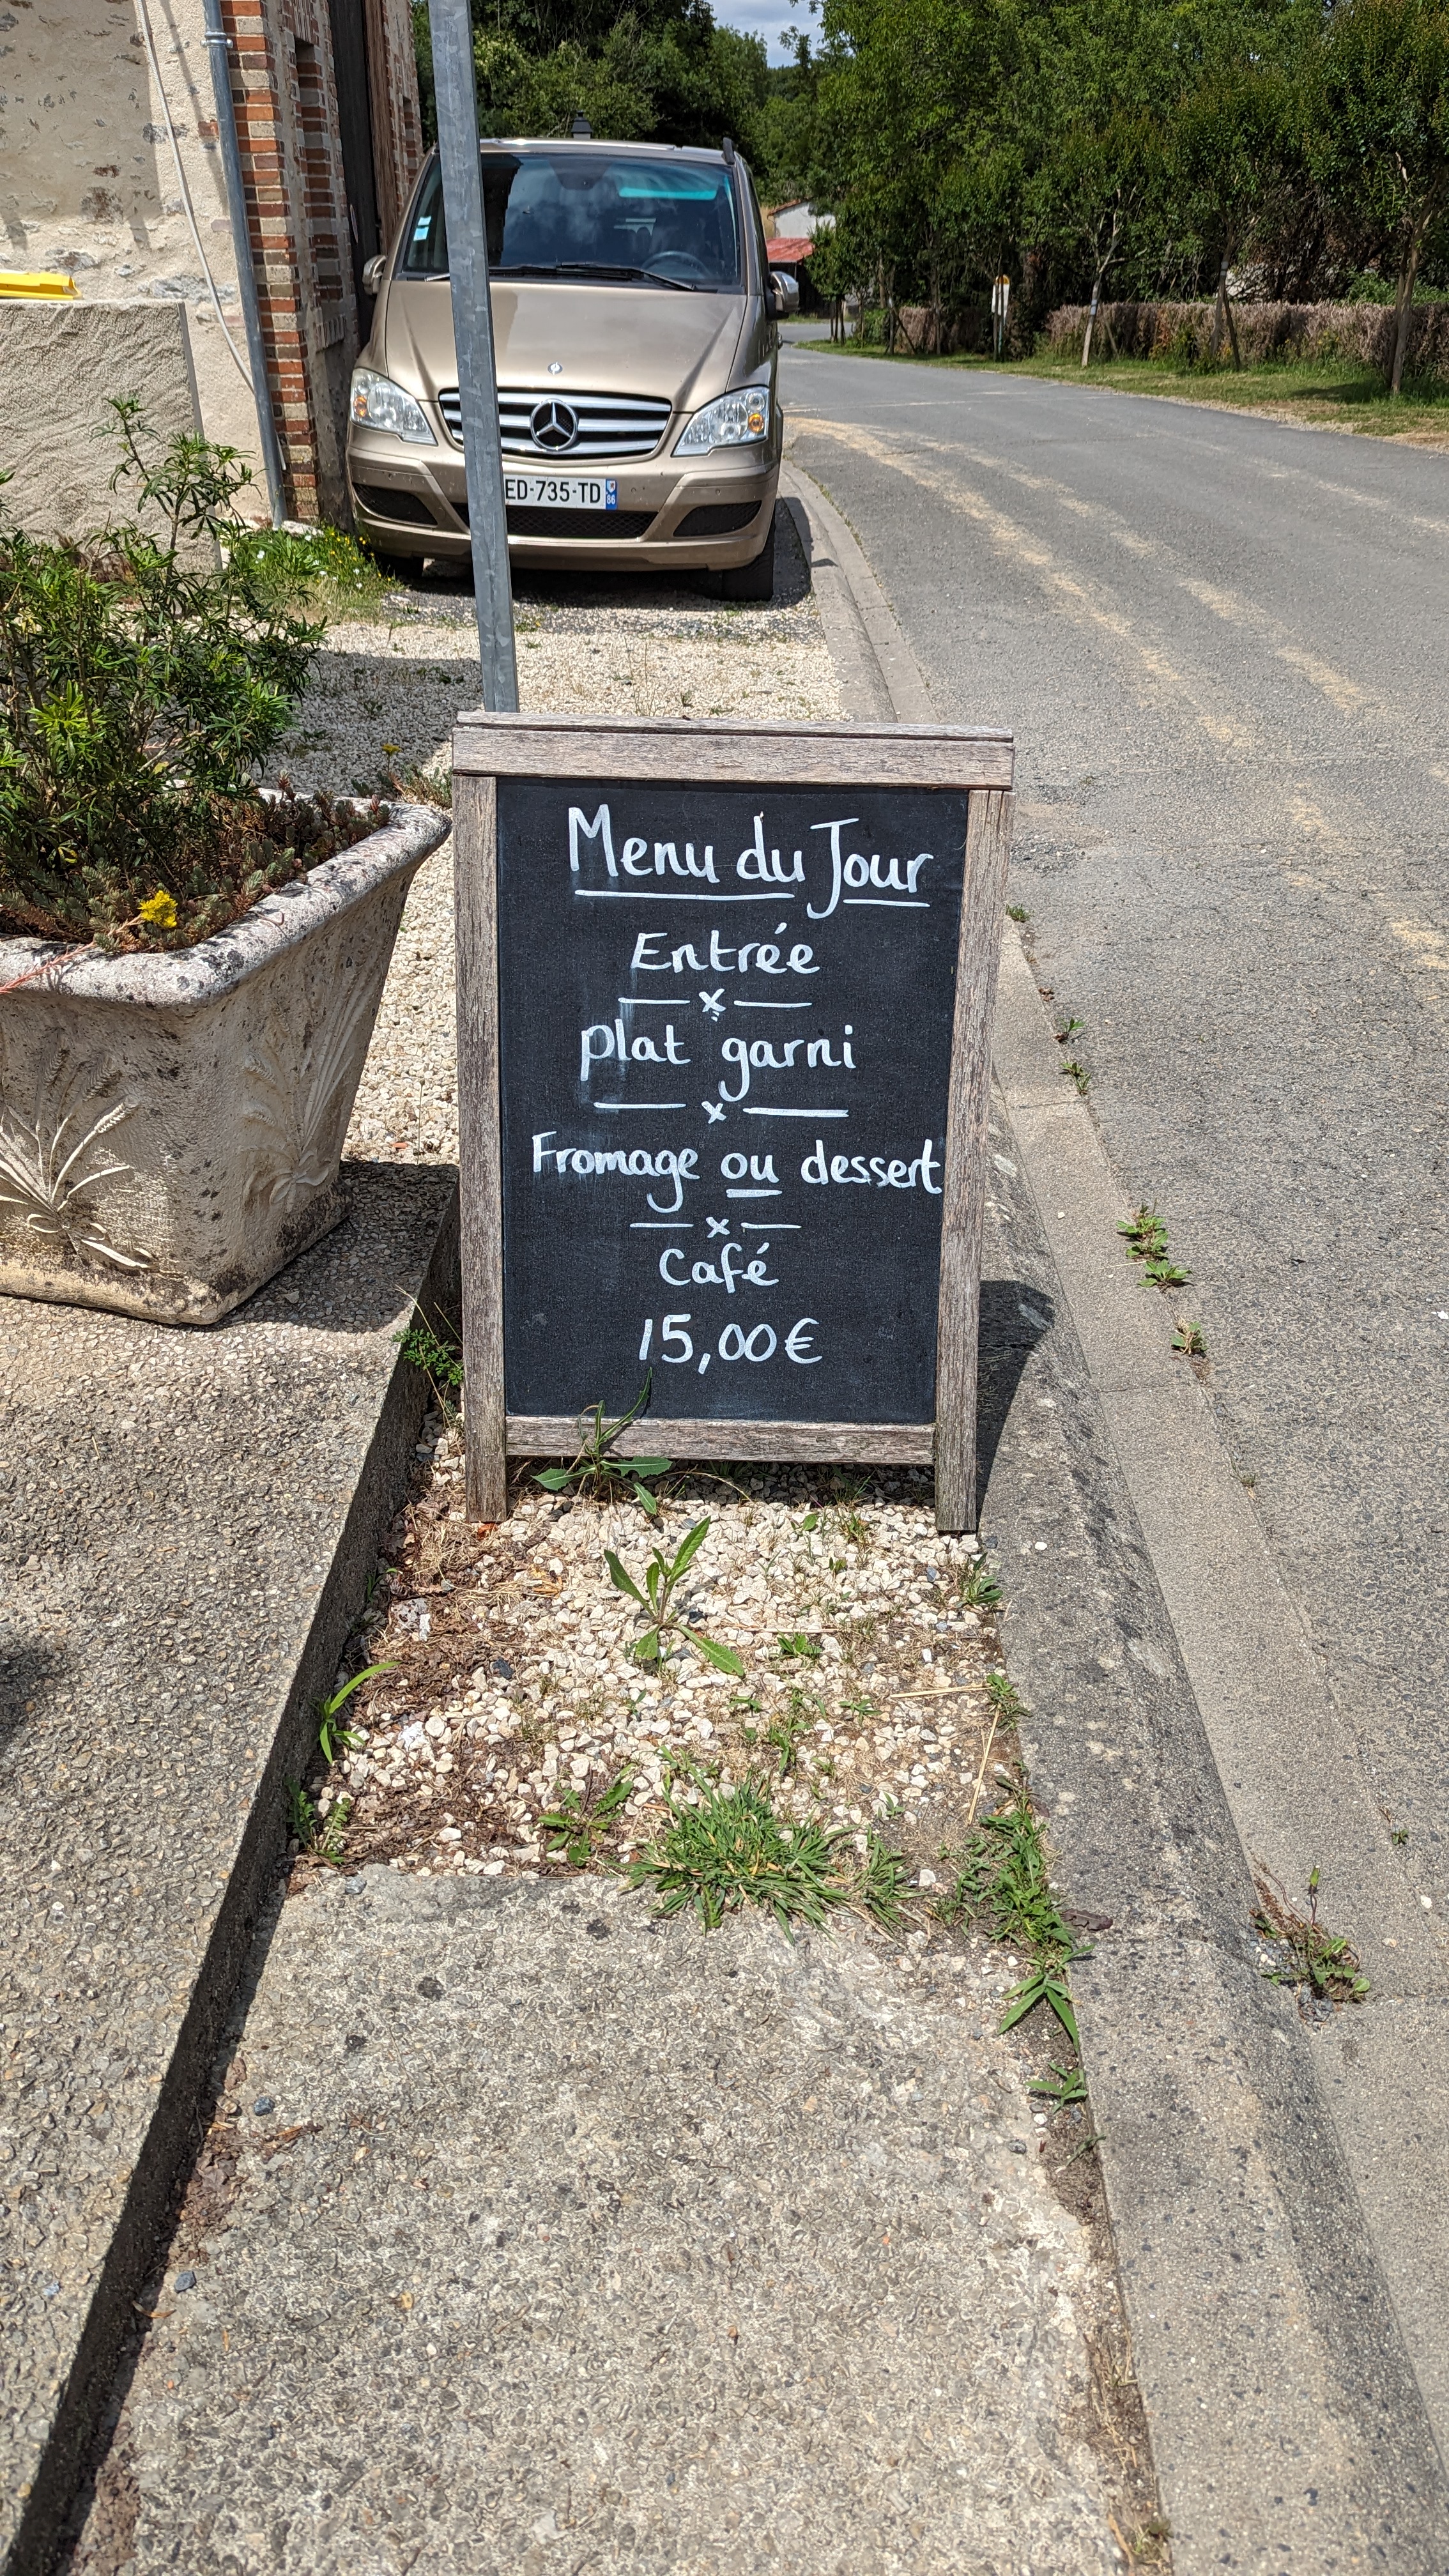 ED-735-TD
86
Menu du Jour
Entrée
Plat garni
Fromage ou dessert
Café
15,00€